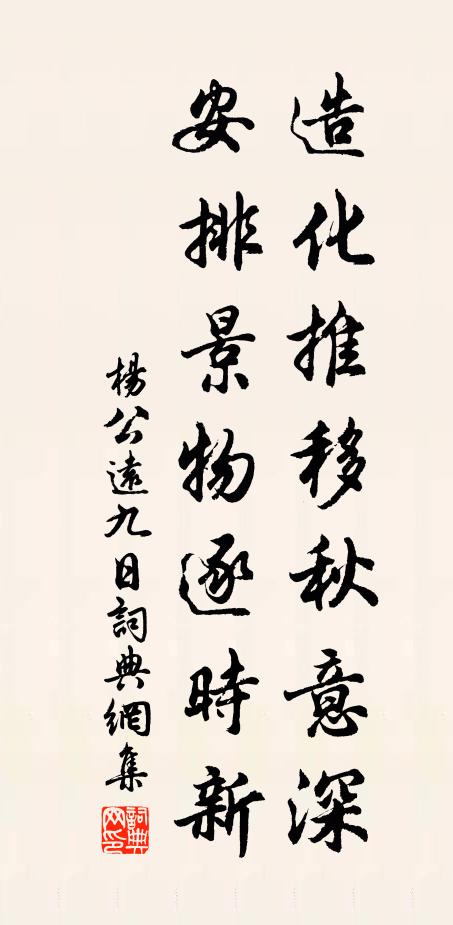 造化推移秋意深
安排景物逐時新
楊公遠九日詞典網集
詞典網印